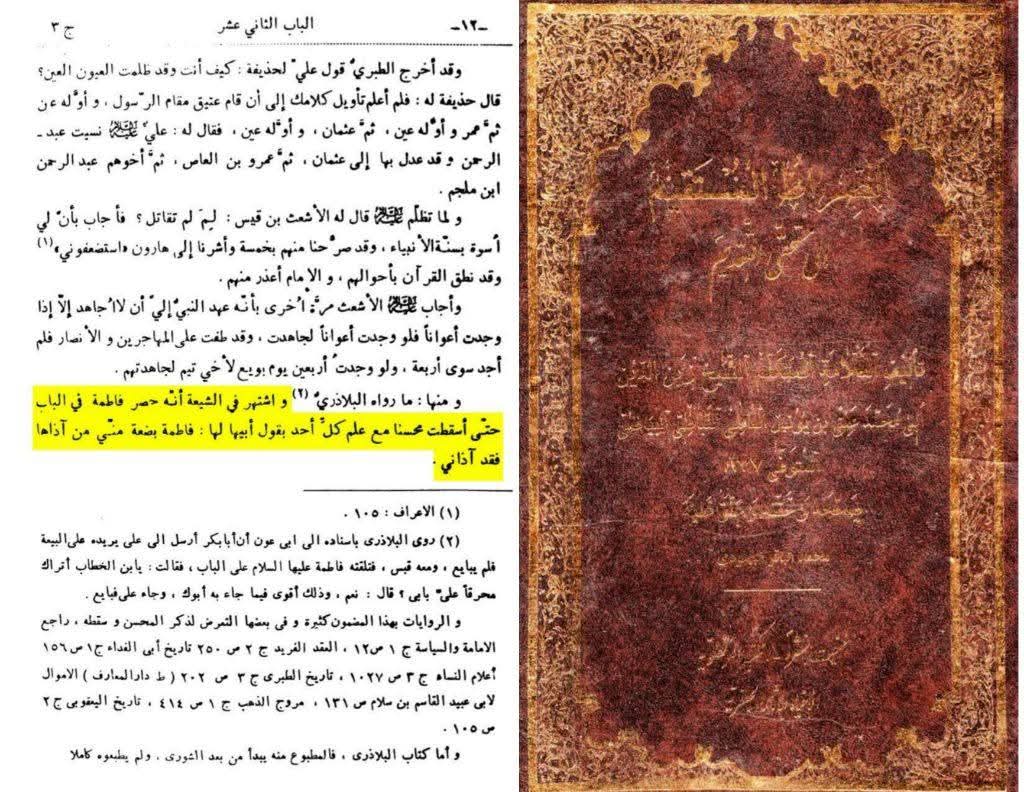 -١٢-
الباب الثاني عشر
ج ٣
وقد أخرج الطبريُّ قول عليّ لحذيفة : كيف أنت وقد ظلمت العيون العين؟
قال حذيفة له : فلم أعلم تأويل كلامك إلى أن قام عتيق مقام الرَّسول ، و أوَّله عن
ثمَّ عمر و أوَّله عين ، ثمَّ عثمان ، و أوَّله عين ، فقال له : عليٌّ عليه السلام نسيت عبد ـ
الرحمن و قد عدل بها إلى عثمان ، ثمَّ عمرو بن العاص ، ثمَّ أخوهم عبد الرحمن
ابن ملجم .
و لما تظلّم عليه السلام قال له الأشعث بن قيس : لِمَ لم تقاتل ؟ فأجاب بأنّ لي
أسوة بسنّة الأنبياء ، وقد صرَّحنا منهم بخمسة وأشرنا إلى هارون «استضعفوني» (١)
وقد نطق القرآن بأحوالهم ، و الامام أعذر منهم .
وأجاب عليه السلام الأشعث مرَّة اُخرى بأنّه عهد النبيُّ إليّ أن لا اُجاهد إلّا إذا
وجدت أعواناً فلو وجدت أعواناً لجاهدت ، وقد طفت على المهاجرين و الأنصار فلم
أجد سوى أربعة ، ولو وجدتُ أربعين يوم بويع لأخي تيم لجاهدتهم .
و منها : ما رواه البلاذريُّ (٢) و اشتهر في الشيعة أنّه حصر فاطمة في الباب
حتّى أسقطت محسنا مع علم كلّ أحد بقول أبيها لها : فاطمة بضعة منّي من آذاها
فقد آذاني .
(١) الاعراف : ١٠٥ .
(٢) روى البلاذرى باسناده الى ابى عون أن أبابكر أرسل الى على يريده على البيعة
فلم يبايع ، ومعه قبس ، فتلقته فاطمة عليها السلام على الباب ، فقالت : يابن الخطاب أتراك
محرقاً علىّ بابى ؟ قال : نعم ، وذلك أقوى فيما جاء به أبوك ، وجاء على فبايع .
و الروايات بهذا المضمون كثيرة و فى بعضها التعرض لذكر المحسن و سقطه ، راجع
الامامة والسياسة ج ١ ص ١٢ ، العقد الفريد ج ٢ ص ٢٥٠ تاريخ أبى الفداء ج ١ ص ١٥٦
أعلام النساء ج ٣ ص ١٠٢٧ ، تاريخ الطبرى ج ٣ ص ٢٠٢ ( ط دار المعارف ) الاموال
لابى عبيد القاسم بن سلام ص ١٣١ ، مروج الذهب ج ١ ص ٤١٤ ، تاريخ اليعقوبى ج ٢
ص ١٠٥ .
و أما كتاب البلاذرى ، فالمطبوع منه يبدأ من بعد الشورى ، ولم يطبعوه كاملا